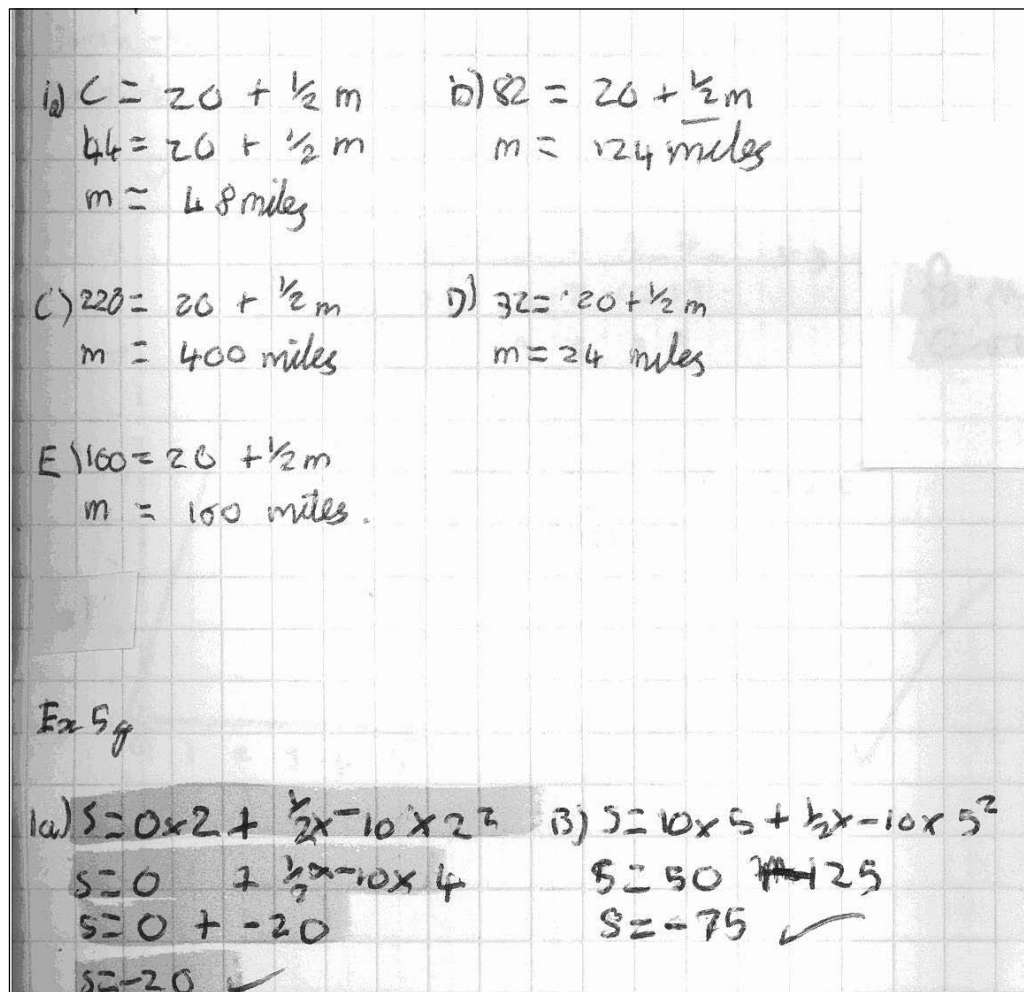 1a) C = 20 + ½ m
44 = 20 + ½ m
m = 48 miles
b) 82 = 20 + ½ m
m = 124 miles
C) 220 = 20 + ½ m
m = 400 miles
D) 32 = 20 + ½ m
m = 24 miles
E) 100 = 20 + ½ m
m = 160 miles.
Ex 5g
1a) S = 0 x 2 + ½ x -10 x 2²
S = 0 + ½ x -10 x 4
S = 0 + -20
S = -20 ✓
B) S = 10 x 5 + ½ x -10 x 5²
S = 50 -125
S = -75 ✓